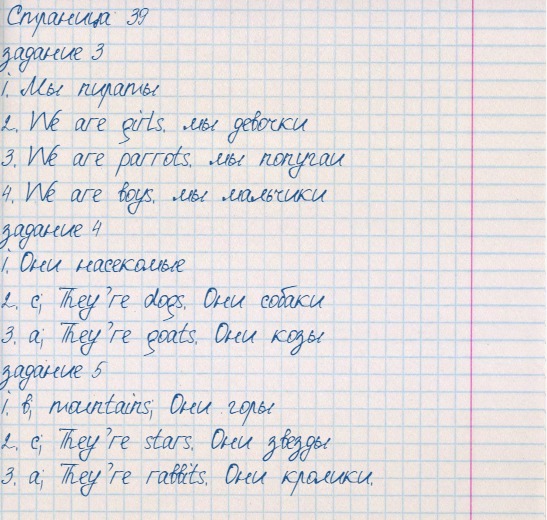 Страница 39
задание 3
1. Мы пираты
2. We are girls. мы девочки
3. We are parrots. мы попугаи
4. We are boys. мы мальчики
задание 4
1. Они насекомые
2. c; They're dogs. Они собаки
3. a; They're goats. Они козы
задание 5
1. b; mountains; Они горы
2. c; They're stars. Они звезды
3. a; They're rabbits. Они кролики.